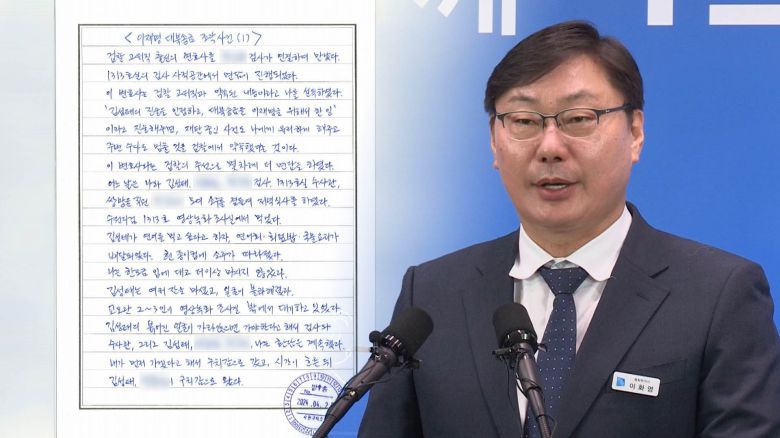 <이재명 대북송금 조작사건 (1)>
검찰 고위직 출신의 변호사를 검사가 연결하여 만났다.
1313호실의 검사 사적공간에서 면담이 진행되었다.
이 변호사는 검찰 고위직과 약속된 내용이라고 나를 설득하였다.
'김성태의 진술을 인정하고, 대북송금을 이재명을 위해서 한 일'
이라고 진술해주면, 재판 중인 사건도 나에게 유리하게 해주고
주변 수사도 멈출 것을 검찰에서 약속했다는 것이다.
이 변호사와는 검찰의 주선으로 몇 차례 더 면담을 하였다.
어느 날은 나와 김성태, 검사, 1313호실 수사관,
쌍방울 직원 모여 소주를 곁들여 저녁식사를 하였다.
수원지검 1313호 영상녹화 조사실에서 먹었다.
김성태가 연어를 먹고 싶다고 하자, 연어회·회덮밥·국물요리가
배달되었다. 흰 종이컵에 소주가 따라졌다.
나는 한모금 입에 대고 더이상 마시지 않았다.
김성태는 여러 잔을 마셨고, 얼굴이 불콰해졌다.
교도관 2~3인이 영상녹화 조사실 밖에서 대기하고 있었다.
김성태의 붉어진 얼굴이 가라앉으면 가야한다고 해서 검사와
수사관, 그리고 김성태, 나는 환담을 계속했다.
내가 먼저 가겠다고 해서 구치감으로 갔고, 시간이 흐른 뒤
김성태, 이 구치감으로 왔다.
2024.04.2
이화영